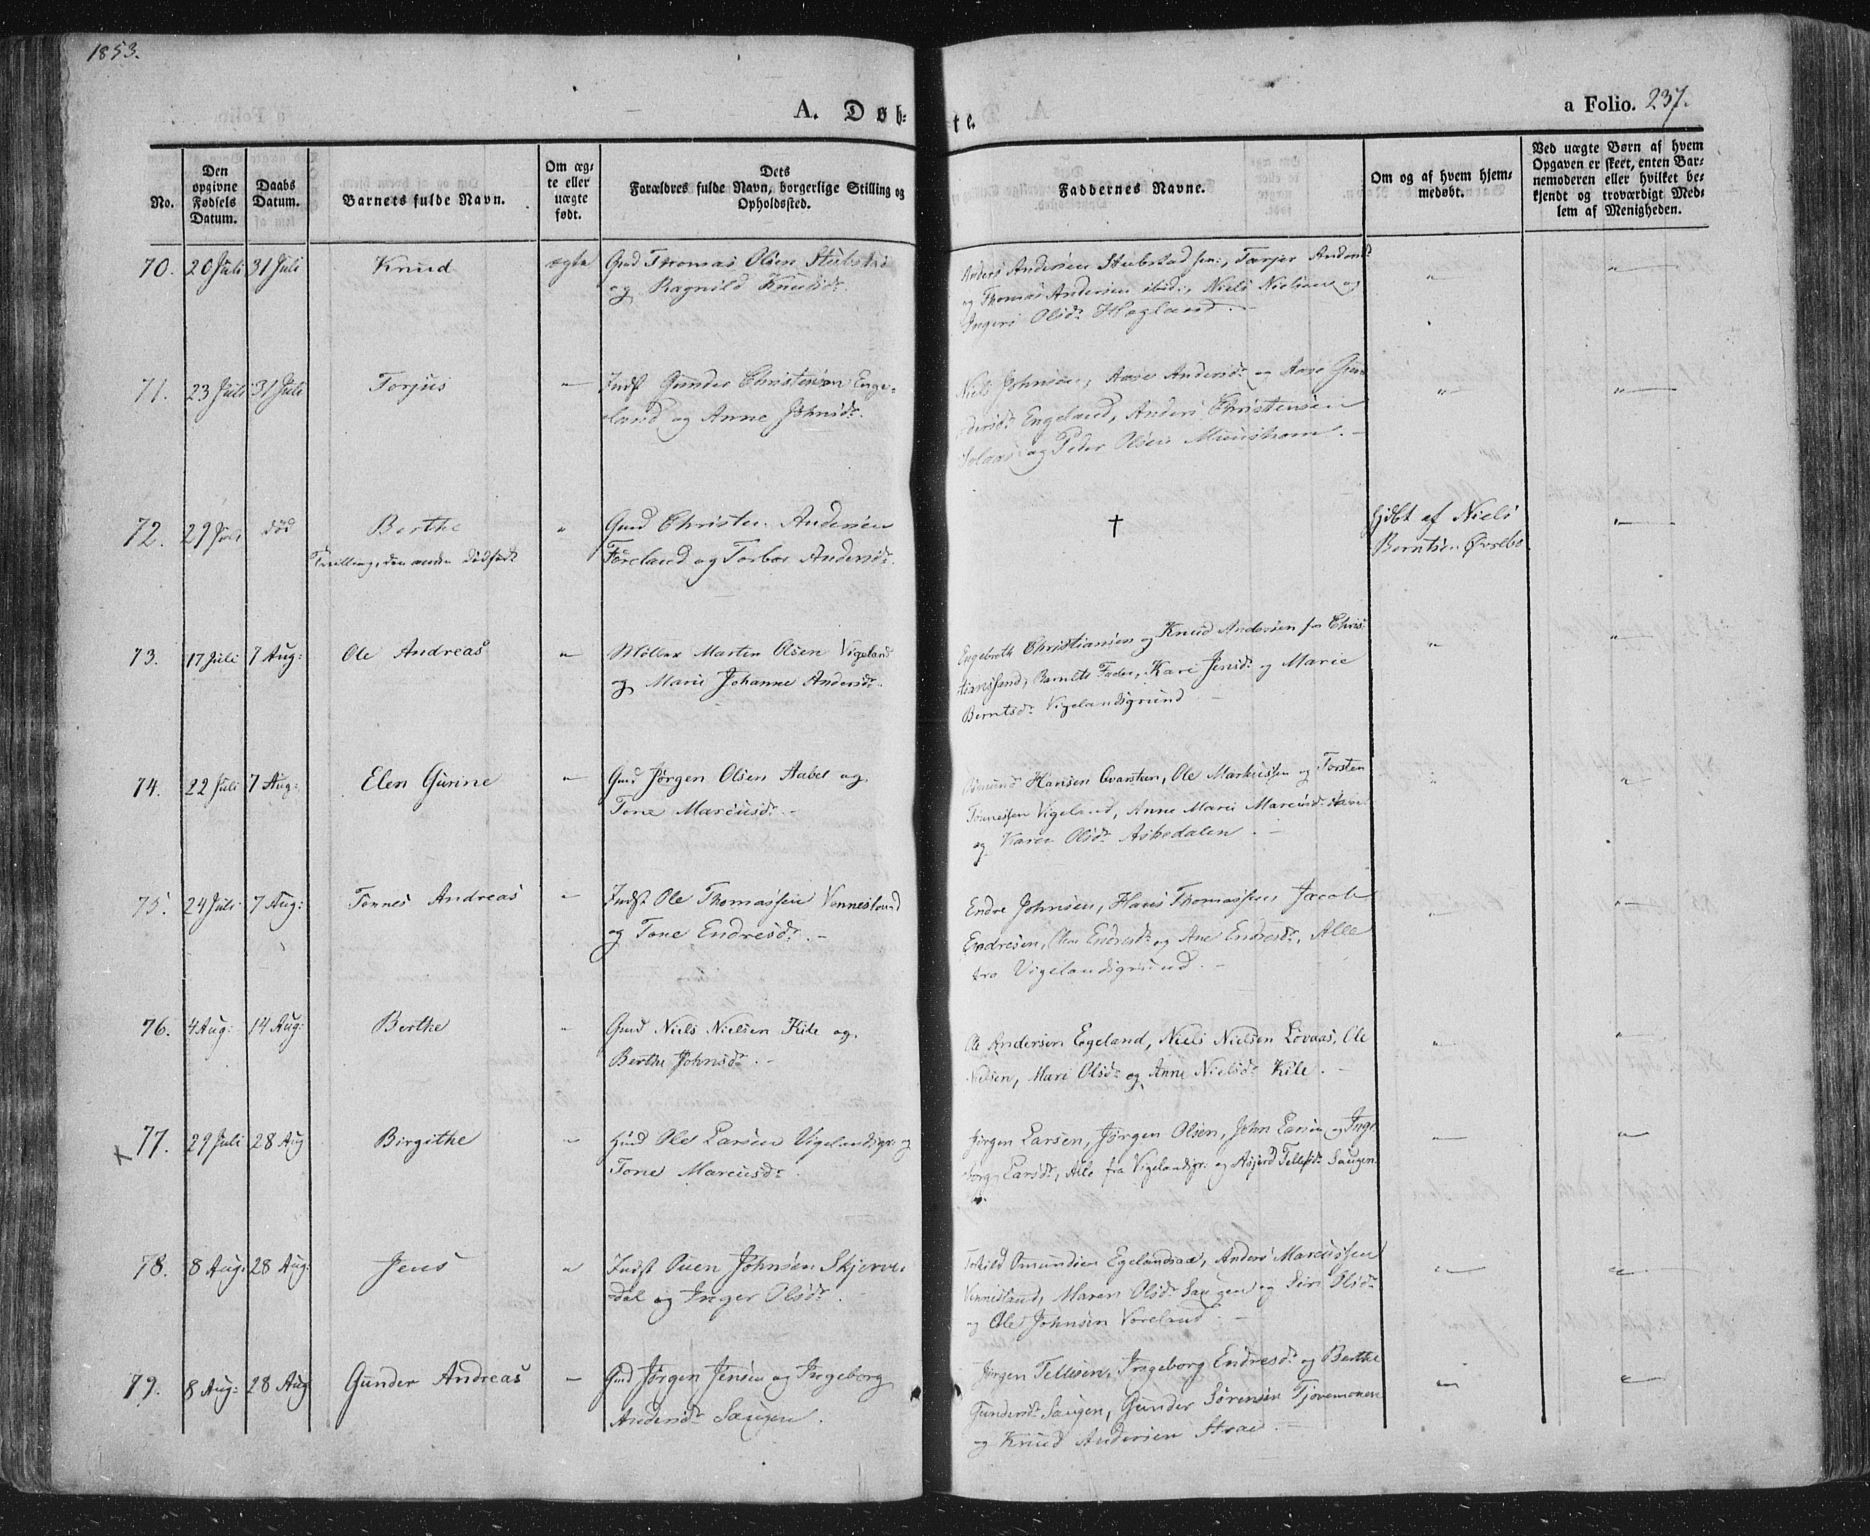 1853.
A. Døb-
te.
a Folio. 237.
No.
Den opgivne Fødsels Datum.
Daabs Datum.
Barnets fulde Navn.
Om ægte eller uægte født.
Dets
Forældres fulde Navn, borgerlige Stilling og
Opholdssted.
Faddernes Navne.
Om og af hvem hjem-
medøbt.
Ved uægte Børn af hvem
Opgaven er skeet, enten Bar-
nemoderen eller hvilket be-
kjendt og troværdigt Med-
lem af Menigheden.
70. 20 Juli 31 Juli Knud ægte Gmd Thomas Olsen
og Ragnild Knudsdr.
Anders Andersen Stubstad sen:, Tarjer Anders
og Thomas Andersen ibid:, Niels Nielsen og
Ingeri Olsdr Hægland. -
" "
71. 23 Juli 31 Juli Torjus " Indst Gunder Christensen Enge-
land og Anne Johnsdr.
Niels Johnsen, Aase Andersdr og Aase Gun-
dersdr Engeland, Anders Christensen
og Peder Olsen -
" "
72. 29 Juli død Berthe " Gmd Christen Andersen
Tvilling, den anden dødfødt
Føreland og Torbor Andersdr.
†
hjdbt af Niels
Berntsen Øvrebø.
"
73. 17 Juli 7 Aug: Ole Andreas " Møller Martin Olsen Vigeland
og Marie Johanne Andersdr.
Engebreth Christiansen og Knud Andersen fra Chris-
tianssand, Barnets Fader, Kari Jensdr og Marie
Berntsdr Vigelandsgrund -
" "
74. 22 Juli 7 Aug: Elen Gurine " Gmd Jørgen Olsen Aabel og
Tone Marcusdr. -
Osmund Hansen Qvarsten, Ole Markussen og Torsten
Tønnessen Vigeland, Anne Marie Marcusdr
og Karen Olsdr Askedalen. -
" "
75. 24 Juli 7 Aug: Tønnes Andreas " Indst Ole Thomassen Vennesland
og Tone Endresdr. -
Endre Johnsen, Hans Thomassen, Jacob
Endresen, Endresdr og Ane Endresdr, Alle
fra Vigelandsgrund. -
" "
76. 4 Aug: 14 Aug: Berthe " Gmd Niels Nielsen Kile og
Berthe Johnsdr. -
Ole Andersen Egeland, Niels Nielsen Lovaas, Ole
Nielsen, Mari Olsdr og Anne Nielsdr Kile. -
" "
x 77. 29 Juli 28 Aug Birgithe " Hmd Ole Larsen Vigelandsgr. og
Tone Marcusdr.
Jørgen Larsen, Jørgen Olsen, John Larsen og Inge-
borg Larsdr, Alle fra Vigelandsgr. og Asjerd Tellefsdr Saugen.
" "
78. 8 Aug: 28 Aug: Jens " Indst Ouen Johnsen Skjerve-
dal og Inger Olsdr.
Torkild Omundsen Egelandsaa, Anders Marcussen
Vennesland, Maren Olsdr Saugen og Siri Olsdr
og Ole Johnsen Voreland -
" "
79. 8 Aug: 28 Aug Gunder Andreas " Gmd Jørgen Jensen og Ingeborg
Andersdr Saugen.
Jørgen Tellefsen, Ingeborg Endresdr og Berthe
Gundersdr Saugen, Gunder Sørensen Tjovemonen
og Knud Andersen Straae. -
" "